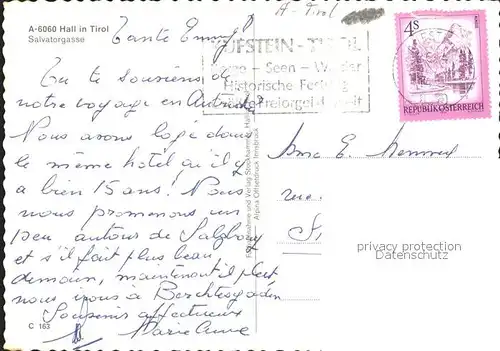 A-6060 Hall in Tirol
Salvatorgasse
A-Tirol
Tante Emmy!
Tu te souviens de
notre voyage en Autriche?
Nous avons logé dans
le même hôtel qu'il y
a bien 15 ans! Nous
nous promenons un
peu autour de Salzbourg
et s'il fait plus beau
demain, maintenant il pleut
nous irons à Berchtesgaden
Souvenirs affectueux
Marie Anne
C 163
Verlag Stockhammer, Hall in
Alpina Offsetdruck Innsbruck
KUFSTEIN - TIROL
- Seen - Wälder
Historische Festung
4S
REPUBLIK ÖSTERREICH
Mme E.
rue
privacy protection
Datenschutz